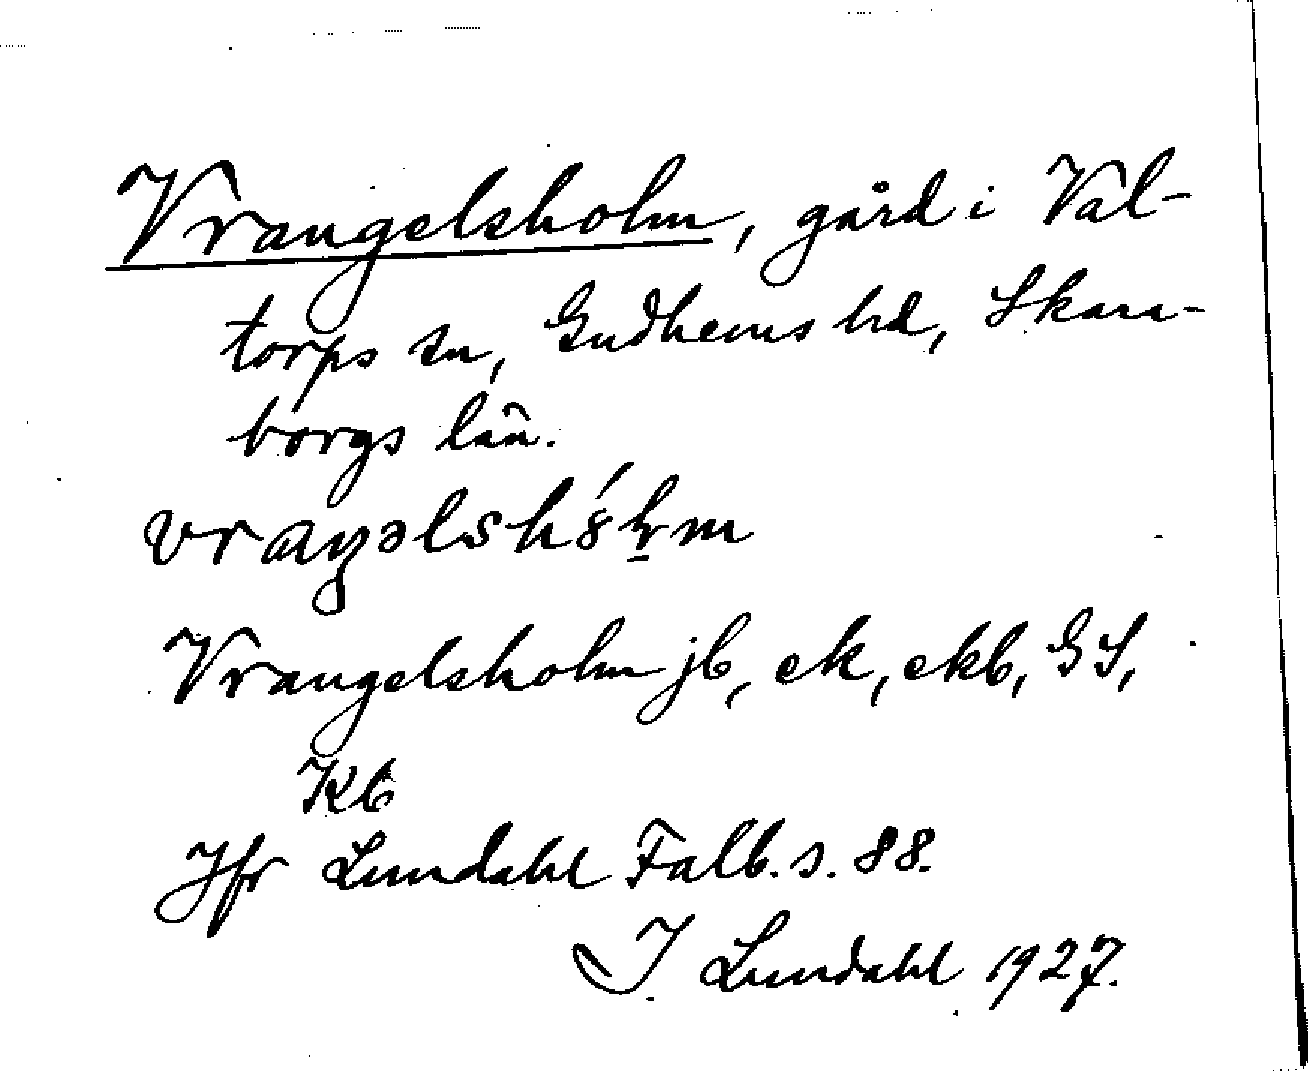 Vrangelsholm, gård i Val-
torps sn, Gudhems hd, Skara-
borgs län.
vraŋəlshó̤lm
Vrangelsholm jb, ek, ekb, GS,
Kb
Jfr Lundahl Falb. s. 88.
I. Lundahl 1927.